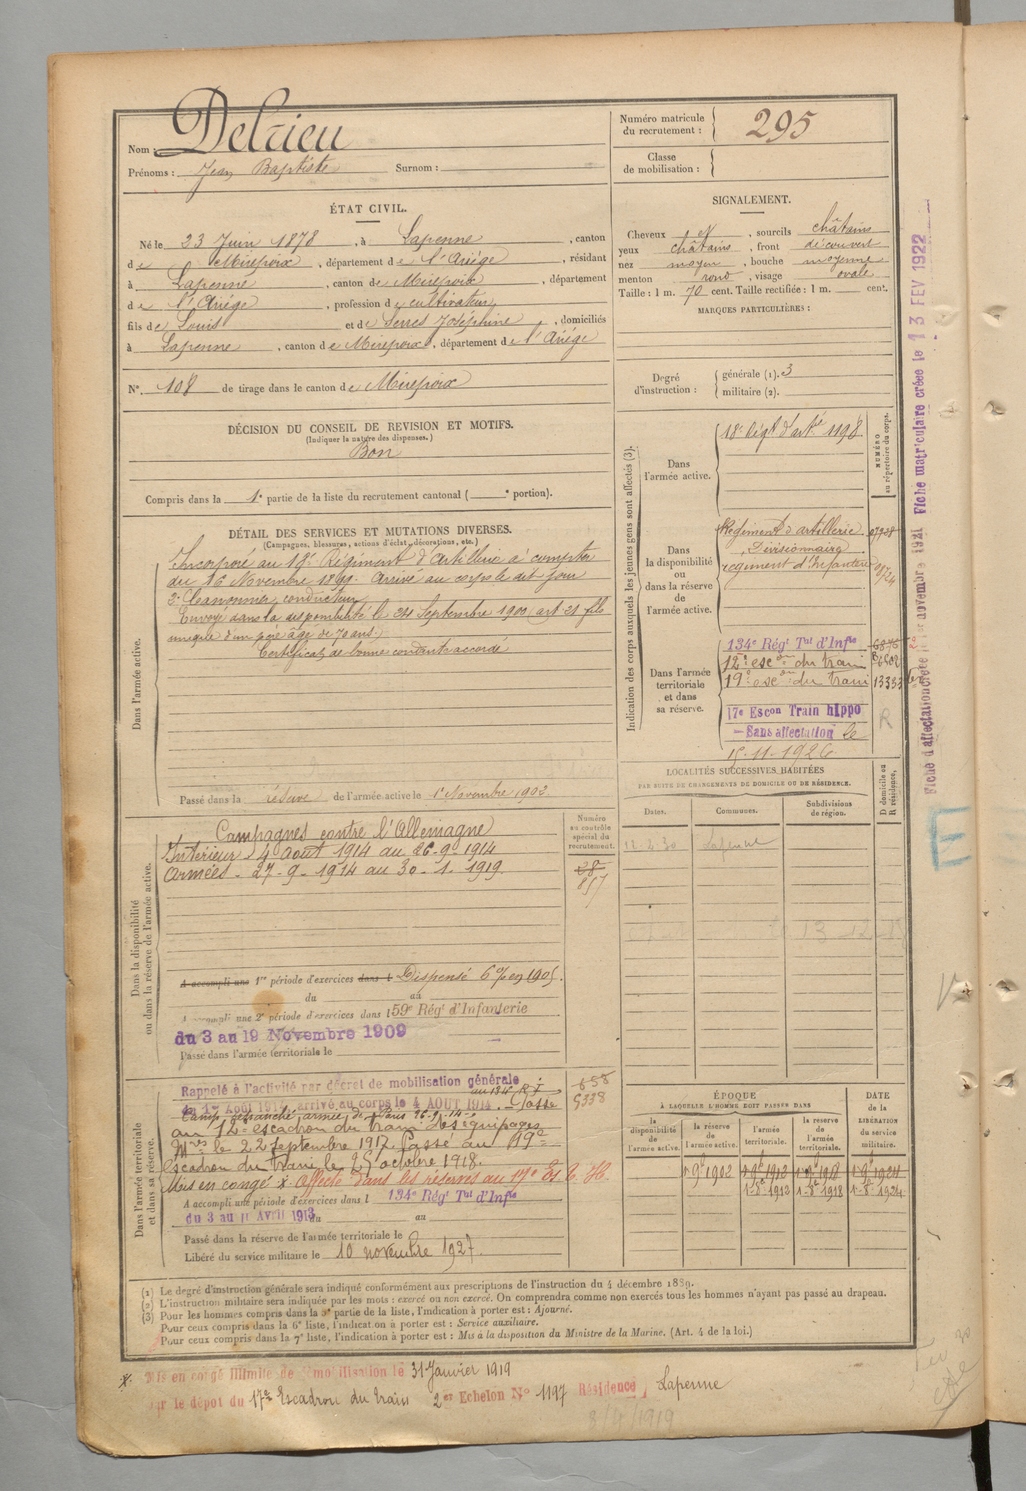 Nom : Delrieu
Prénoms : Jean Baptiste Surnom :
Numéro matricule
du recrutement : 295
Classe
de mobilisation :
ÉTAT CIVIL.
Né le 23 Juin 1878, à Lapenne, canton
de Mirepoix, département de l'Ariége, résidant
à Lapenne, canton de Mirepoix, département
de l'Ariége, profession de cultivateur,
fils de Louis et de Serres Joséphine, domiciliés
à Lapenne, canton de Mirepoix, département de l'Ariége
N° 108 de tirage dans le canton de Mirepoix
SIGNALEMENT.
Cheveux et, sourcils châtains
yeux châtains, front découvert
nez moyen, bouche moyenne
menton rond, visage ovale
Taille : 1 m. 70 cent. Taille rectifiée : 1 m. cent.
MARQUES PARTICULIÈRES :
Degré
d'instruction :
générale (1). 3
militaire (2).
DÉCISION DU CONSEIL DE REVISION ET MOTIFS.
(Indiquer la nature des dispenses.)
Bon
Compris dans la 1e partie de la liste du recrutement cantonal ( e portion).
DÉTAIL DES SERVICES ET MUTATIONS DIVERSES.
(Campagnes, blessures, actions d'éclat, décorations, etc.)
Dans l'armée active.
Incorporé au 18e Régiment d'Artillerie à compter
du 16 Novembre 1899. Arrivé au corps le dit jour
2e Canonnier conducteur
Envoyé dans la disponibilité le 24 Septembre 1900 art 21 fils
unique d'un père âgé de 70 ans.
Certificat de bonne conduite accordé
Passé dans la réserve de l'armée active le 1er Novembre 1902
Indication des corps auxquels les jeunes gens sont affectés (3).
NUMÉRO
au répertoire du corps.
Dans
l'armée active.
18e Régt d'artie 1198
Dans
la disponibilité
ou
dans la réserve
de
l'armée active.
Régiment d'artillerie
Divisionnaire
régiment d'Infanterie
Dans l'armée
territoriale
et dans
sa réserve.
134e Régt Tal d'Infie
12e escon du train
19e escon du train 13333
17e Escon Train hippo
Sans affectation le
15-11-1926
R
LOCALITÉS SUCCESSIVES HABITÉES
PAR SUITE DE CHANGEMENTS DE DOMICILE OU DE RÉSIDENCE.
D domicile ou
R résidence.
Dates. Communes. Subdivisions
de région.
12-2-30 Lapenne
Dans la disponibilité
ou dans la réserve de l'armée active.
Numéro
au contrôle
spécial du
recrutement.
Campagnes contre l'Allemagne
Intérieur 4 août 1914 au 26-9-1914
Armées - 27-9-1914 au 30-1-1919
A accompli une 1re période d'exercices dans l Dispensé 6%en 1905.
du au
A accompli une 2e période d'exercices dans l 59e Régt d'Infanterie
du 3 au 19 Novembre 1909
Passé dans l'armée territoriale le
Dans l'armée territoriale
et dans sa réserve.
Rappelé à l'activité par décret de mobilisation générale
arrivé au corps le 4 AOUT 1914. Passé
Camp retranché armée de Paris 26-9-14
au 12e escadron du train des équipages
Mres le 22 septembre 1917. Passé au 19e
escadron du train le 25 octobre 1918.
Mis en congé x Affecté dans les réserves au 17e Es. T. H.
A accompli une période d'exercices dans l 134e Régt Tal d'Infie
du 3 au 11 Avril 1913 du au
Passé dans la réserve de l'armée territoriale le
Libéré du service militaire le 10 novembre 1927.
ÉPOQUE
À LAQUELLE L'HOMME DOIT PASSER DANS
DATE
de la
LIBÉRATION
du service
militaire.
la
disponibilité
de
l'armée active.
la réserve
de
l'armée active.
l'armée
territoriale.
la réserve
de
l'armée
territoriale.
1er 9bre 1902 1er 9bre 1912 1er 9bre 1918 1er 9bre 1924
1-8e-1912 1-8e-1918 1-8e-1924
(1) Le degré d'instruction générale sera indiqué conformément aux prescriptions de l'instruction du 4 décembre 1889.
(2) L'instruction militaire sera indiquée par les mots : exercé ou non exercé. On comprendra comme non exercés tous les hommes n'ayant pas passé au drapeau.
(3) Pour les hommes compris dans la 3e partie de la liste, l'indication à porter est : Ajourné.
Pour ceux compris dans la 6e liste, l'indication à porter est : Service auxiliaire.
Pour ceux compris dans la 7e liste, l'indication à porter est : Mis à la disposition du Ministre de la Marine. (Art. 4 de la loi.)
x. Mis en congé illimité de démobilisation le 31 Janvier 1919
par le dépôt du 17e Escadron du train 2er Echelon N° 1197 Résidence Lapenne
3/9/1919
Fiche matriculaire créée le 13 FEV 1922